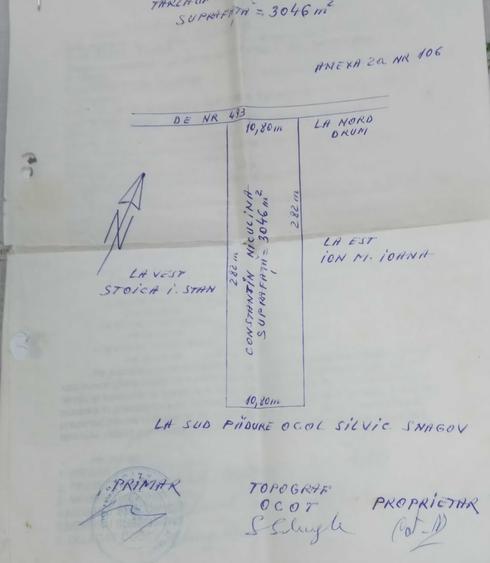 SUPRAFAȚA = 3046 m²
ANEXA 2a NR 106
DE NR 493
10,80m
LA NORD
DRUM
N
282 m
CONSTANTIN NICULINA
SUPRAFAȚĂ = 3046 m²
282 m
LA VEST
STOICA I. STAN
LA EST
ION M. IOANA
10,80m
LA SUD PĂDURE OCOL SILVIC SNAGOV
PRIMAR
TOPOGRAF
OCOT
PROPRIETAR